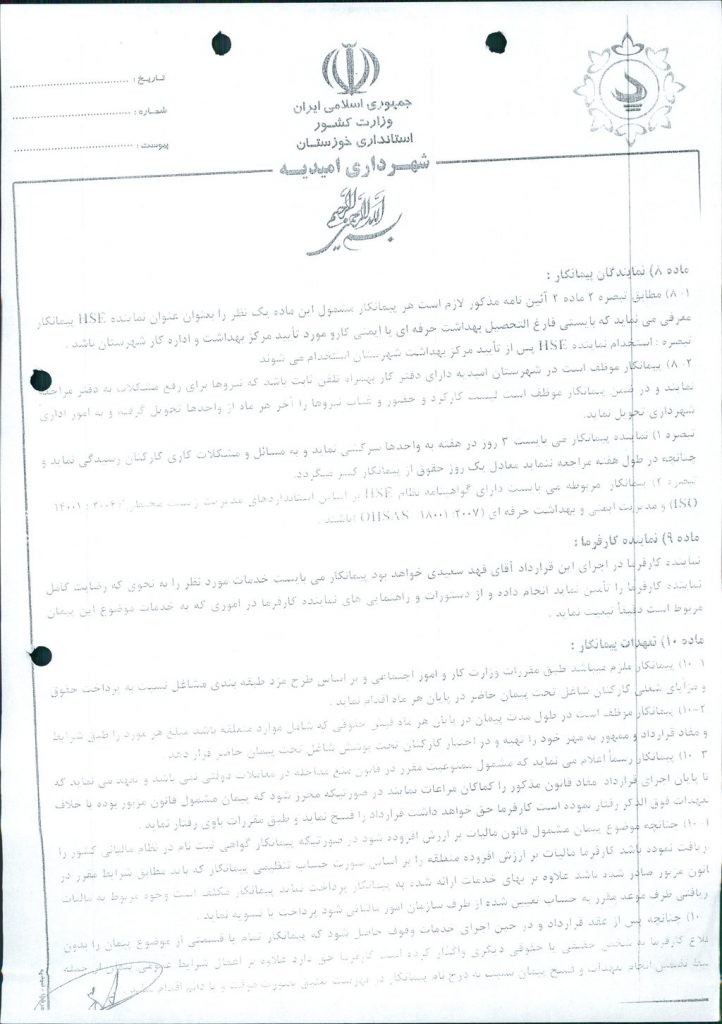 تاریخ :
شماره :
پیوست :
جمهوری اسلامی ایران
وزارت کشور
استانداری خوزستان
شهرداری امیدیه
بسم الله الرحمن الرحیم
ماده ۸) نمایندگان پیمانکار :
۸-۱) مطابق تبصره ۲ ماده ۲ آئین نامه مذکور لازم است هر پیمانکار مشمول این ماده یک نظر را بعنوان عنوان نماینده HSE پیمانکار
معرفی می نماید که بایستی فارغ التحصیل بهداشت حرفه ای یا ایمنی کارو مورد تأیید مرکز بهداشت و اداره کار شهرستان باشد .
تبصره : استخدام نماینده HSE پس از تأیید مرکز بهداشت شهرستان استخدام می شوند
۸-۲) پیمانکار موظف است در شهرستان امیدیه دارای دفتر کار بهمراه تلفن ثابت باشد که نیروها برای رفع مشکلات به دفتر مراجعه
نمایند و در ضمن پیمانکار موظف است لیست کارکرد و حضور و غیاب نیروها را آخر هر ماه از واحدها تحویل گرفته و به امور اداری
شهرداری تحویل نماید.
تبصره ۱) نماینده پیمانکار می بایست ۳ روز در هفته به واحدها سرکشی نماید و به مسائل و مشکلات کاری کارکنان رسیدگی نماید و
چنانچه در طول هفته مراجعه ننماید معادل یک روز حقوق از پیمانکار کسر میگردد.
تبصره ۲) پیمانکار مربوطه می بایست دارای گواهینامه نظام HSE بر اساس استانداردهای مدیریت زیست محیطی (۲۰۰۴ : ۱۴۰۰۱
ISO) و مدیریت ایمنی و بهداشت حرفه ای (OHSAS ۱۸۰۰۱:۲۰۰۷) باشند .
ماده ۹) نماینده کارفرما :
نماینده کارفرما در اجرای این قرارداد آقای فهد سعیدی خواهد بود پیمانکار می بایست خدمات مورد نظر را به نحوی که رضایت کامل
نماینده کارفرما را تأمین نماید انجام داده و از دستورات و راهنمایی های نماینده کارفرما در اموری که به خدمات موضوع این پیمان
مربوط است دقیقاً تبعیت نماید .
ماده ۱۰) تعهدات پیمانکار :
۱۰-۱) پیمانکار ملزم میباشد طبق مقررات وزارت کار و امور اجتماعی و بر اساس طرح مزد طبقه بندی مشاغل نسبت به پرداخت حقوق
و مزایای شغلی کارکنان شاغل تحت پیمان حاضر در پایان هر ماه اقدام نماید .
۱۰-۲) پیمانکار موظف است در طول مدت پیمان در پایان هر ماه فیش حقوقی که شامل موارد متعلقه باشد مبلغ هر مورد را طبق شرایط
و مفاد قرارداد و ممهور به مهر خود را تهیه و در اختیار کارکنان تحت پوشش شاغل تحت پیمان حاضر قرار دهد.
۱۰-۳) پیمانکار رسماً اعلام می نماید که مشمول ممنوعیت مقرر در قانون منع مداخله در معاملات دولتی نمی باشد و تعهد می نماید که
تا پایان اجرای قرارداد مفاد قانون مذکور را کماکان مراعات نمایند در صورتیکه محرز شود که پیمان مشمول قانون مزبور بوده یا خلاف
تعهدات فوق الذکر رفتار نموده است کارفرما حق خواهد داشت قرارداد را فسخ نماید و طبق مقررات باوی رفتار نماید .
چنانچه موضوع پیمان مشمول قانون مالیات بر ارزش افزوده شود در صورتیکه پیمانکار گواهی ثبت نام در نظام مالیاتی کشور را
دریافت نموده باشد کارفرما مالیات بر ارزش افزوده متعلقه را بر اساس صورت حساب تنظیمی پیمانکار که باید مطابق شرایط مقرر در
قانون مزبور صادر شده باشد علاوه بر بهای خدمات ارائه شده به پیمانکار پرداخت نماید پیمانکار مکلف است وجوه مربوط به مالیات
دریافتی ظرف موعد مقرر به حساب تعیین شده از طرف سازمان امور مالیاتی شود پرداخت یا تسویه نماید .
چنانچه پس از عقد قرارداد و در حین اجرای خدمات وقوف حاصل شود که پیمانکار تمام یا قسمتی از موضوع پیمان را بدون
اطلاع کارفرما به شخص حقیقی یا حقوقی دیگری واگذار کرده است کارفرما حق دارد علاوه بر اعمال شرایط عمومی پیمان از جمله
ضبط تضمین انجام تعهدات و فسخ پیمان نسبت به درج نام پیمانکار در فهرست بصورت موقت و یا دائم اقدام نماید